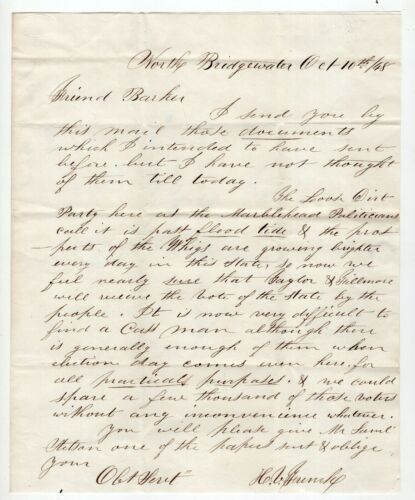 North Bridgewater Oct 10th/48
Friend Barker
I send you by
this mail those documents
which I intended to have sent
before. but I have not thought
of them till today.
The Loose Dirt
Party here as the Marblehead Politicians
call it is past flood tide & the pros
-pects of the Whigs are growing brighter
every day in this State, so now we
feel nearly sure that Taylor & Fillmore
will receive the vote of the State by the
people. It is now very difficult to
find a Cass man although there
is generally enough of them when
election day comes even here. for
all practical purposes. & we could
spare a few thousand of those voters
without any inconvenience whatever.
You will please give Mr Saml
Stetson one of the papers sent & oblige
your
Obt Servt